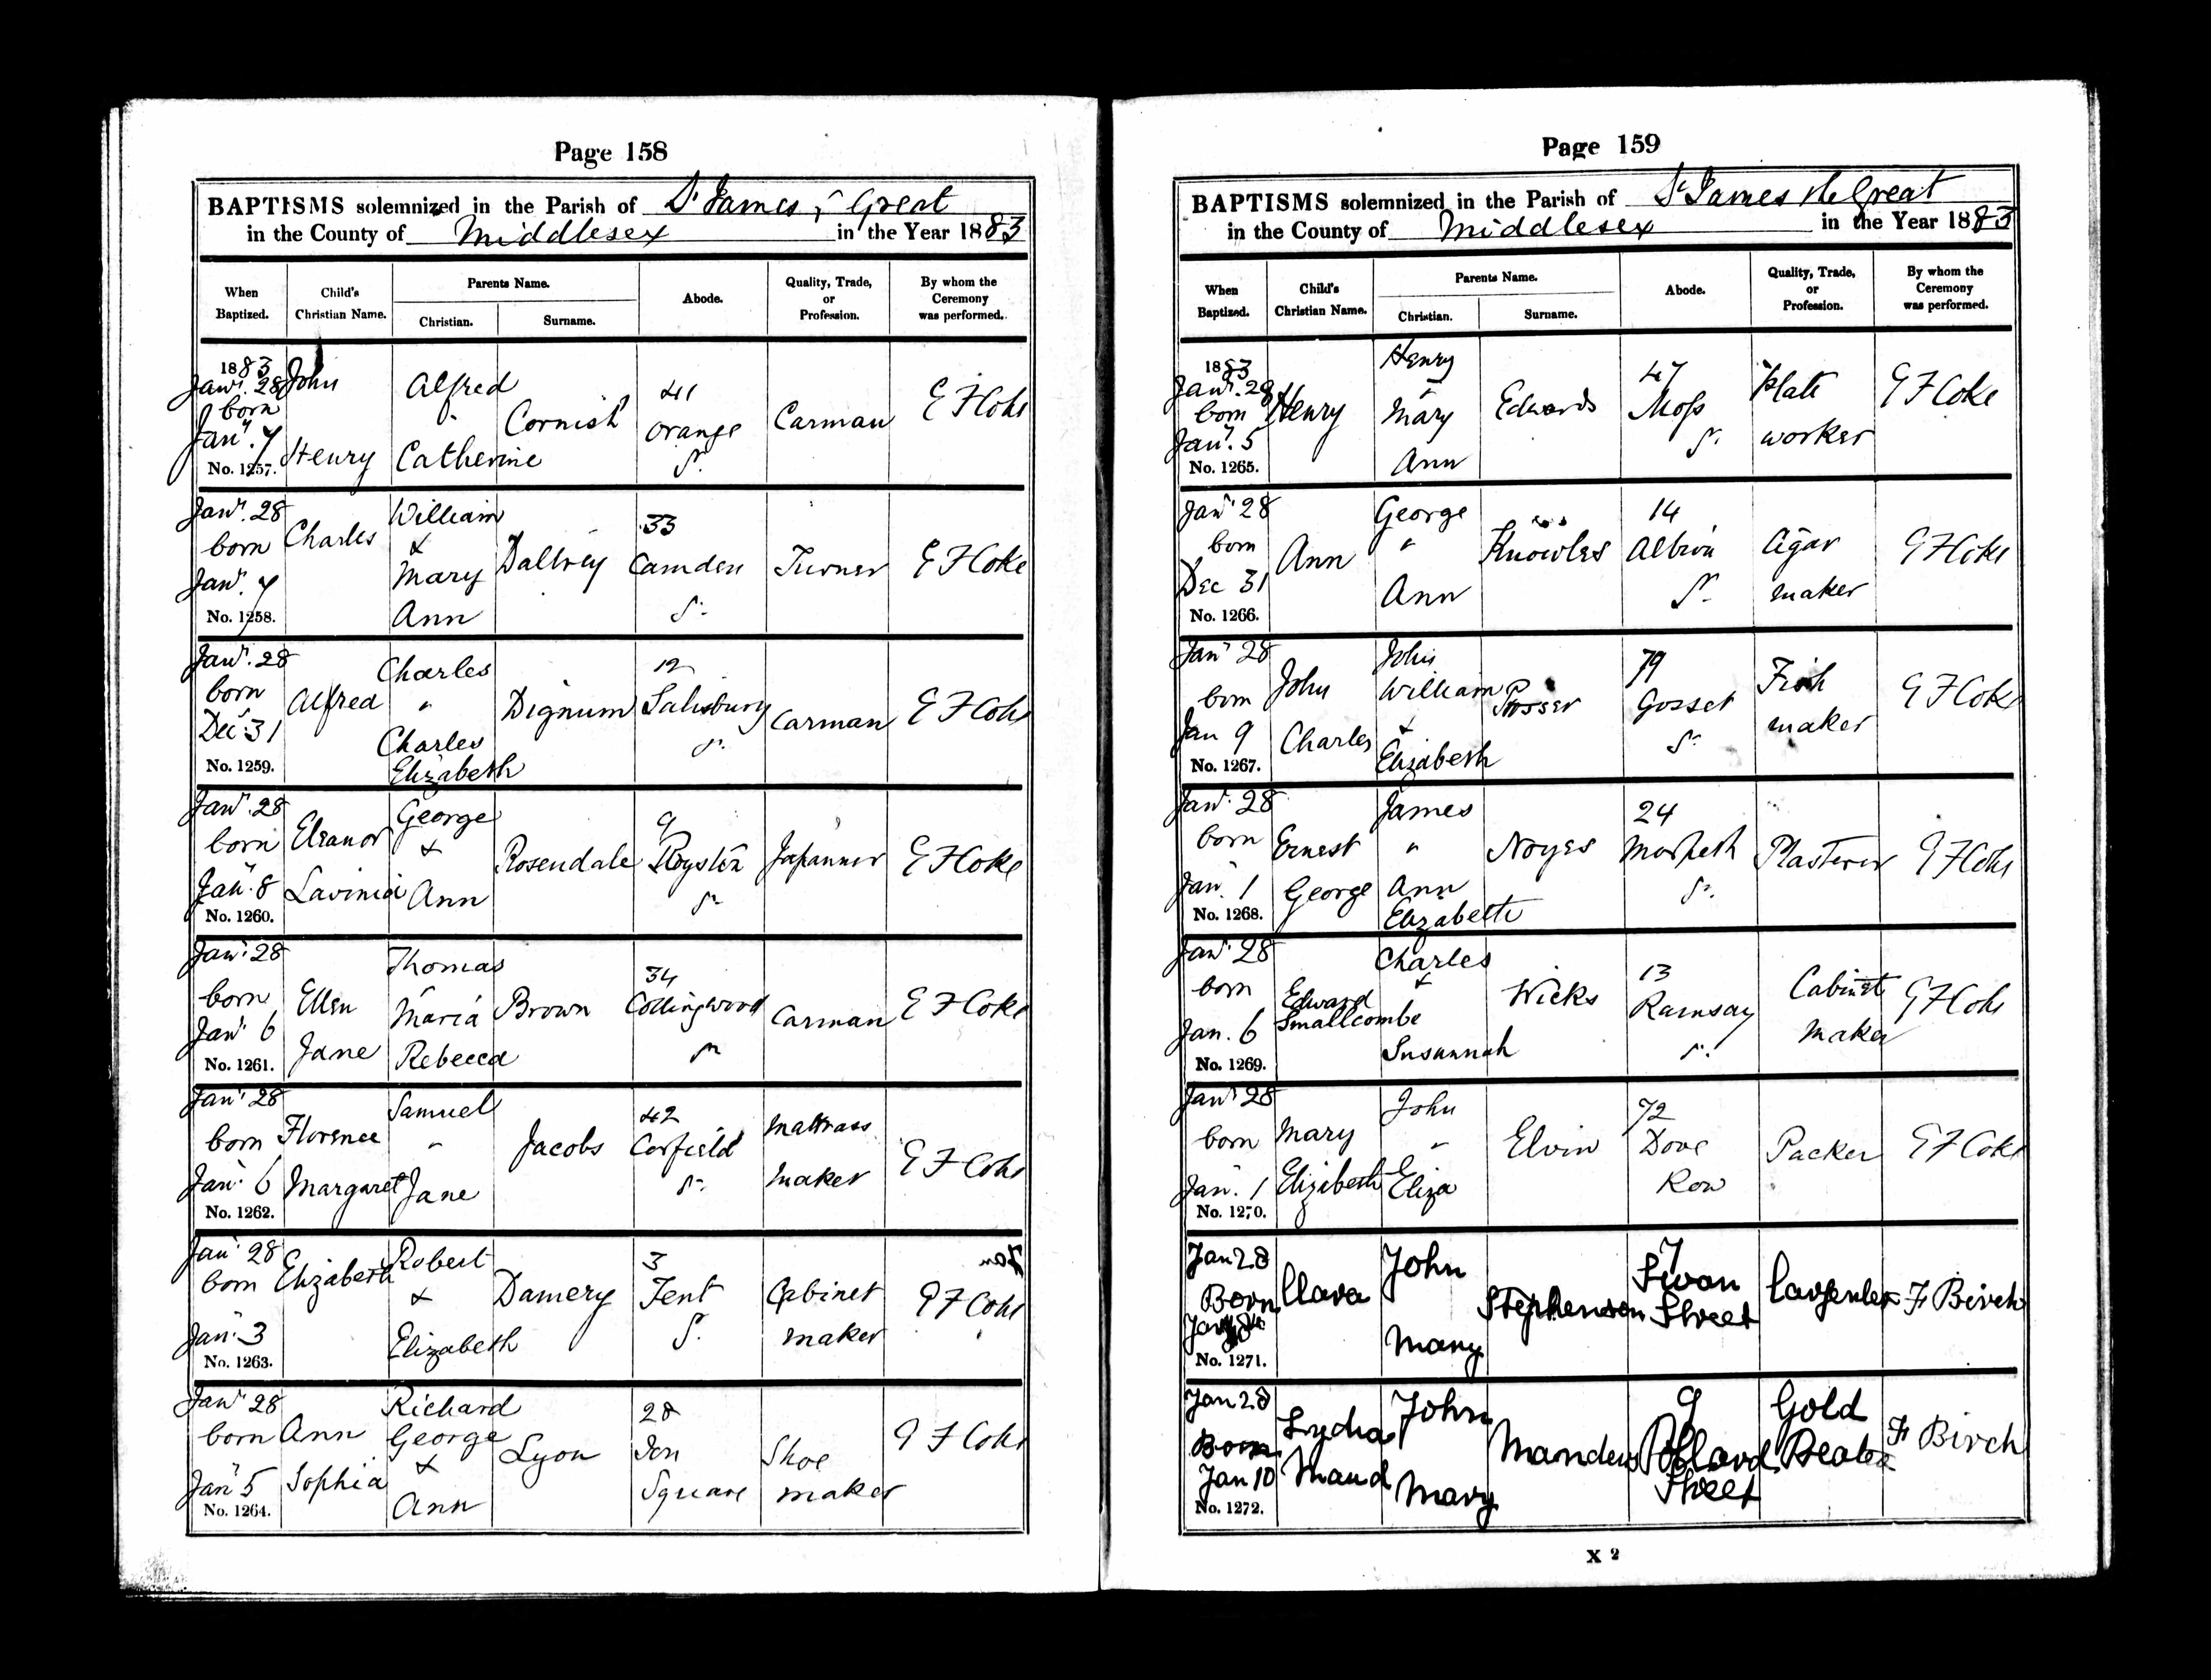 Page 158
BAPTISMS solemnized in the Parish of St James ye Great
in the County of Middlesex in the Year 1883
When Baptized. Child's Christian Name. Parents Name. Christian. Surname. Abode. Quality, Trade, or Profession. By whom the Ceremony was performed.
1883 Jany. 28 born Jany. 7 No. 1257. John Henry Alfred " Catherine Cornish 41 Orange St. Carman E F Coke
Jany. 28 born Jany. 7 No. 1258. Charles William & Mary Ann Daltrey 33 Camden St. Turner E F Coke
Jany. 28 born Dec. 31 No. 1259. Alfred Charles " Charles Elizabeth Dignum 12 Salisbury St. Carman E F Coke
Jany. 28 born Jany. 8 No. 1260. Eleanor Lavinia George & Ann Rosendale 9 Royston St. Japanner E F Coke
Jany. 28 born Jany 6 No. 1261. Ellen Jane Thomas " Maria Rebecca Brown 34 Collingwood St. Carman E F Coke
Jany 28 born Jany. 6 No. 1262. Florence Margaret Samuel " Jane Jacobs 42 Corfield St. Mattrass maker E F Coke
Jany 28 born Jany. 3 No. 1263. Elizabeth Robert & Elizabeth Damery 3 Tent St. Cabinet maker E F Coke
Jany 28 born Jany 5 No. 1264. Ann Sophia Richard George & Ann Lyon 28 Ion Square Shoe maker E F Coke
Page 159
BAPTISMS solemnized in the Parish of St James the Great
in the County of Middlesex in the Year 1883
When Baptized. Child's Christian Name. Parents Name. Christian. Surname. Abode. Quality, Trade, or Profession. By whom the Ceremony was performed.
1883 Jany. 28 born Jany. 5 No. 1265. Henry Henry & Mary Ann Edwards 47 Moss St. Plate worker E F Coke
Jany 28 born Dec 31 No. 1266. Ann George " Ann Knowles 14 Albion St. Cigar maker E F Coke
Jany 28 born Jan 9 No. 1267. John Charles John William & Elizabeth Prosser 79 Gosset St. maker E F Coke
Jany. 28 born Jany 1 No. 1268. Ernest George James " Ann Elizabeth Noyes 24 Morpeth St. Plasterer E F Coke
Jany. 28 born Jan. 6 No. 1269. Edward Smallcombe Charles & Susannah Wicks 13 Ramsay St. Cabinet Maker E F Coke
Jany 28 born Jan. 1 No. 1270. Mary Elizabeth John " Eliza Elvin 72 Dove Row Packer E F Coke
Jan 28 Born No. 1271. Clara John Mary Stephenson 7 Swan Street Carpenter F Birch
Jan 28 Born Jan 10 No. 1272. Lydia Maud John Mary Manders 9 Pollard Street Gold Beater F Birch
X 2